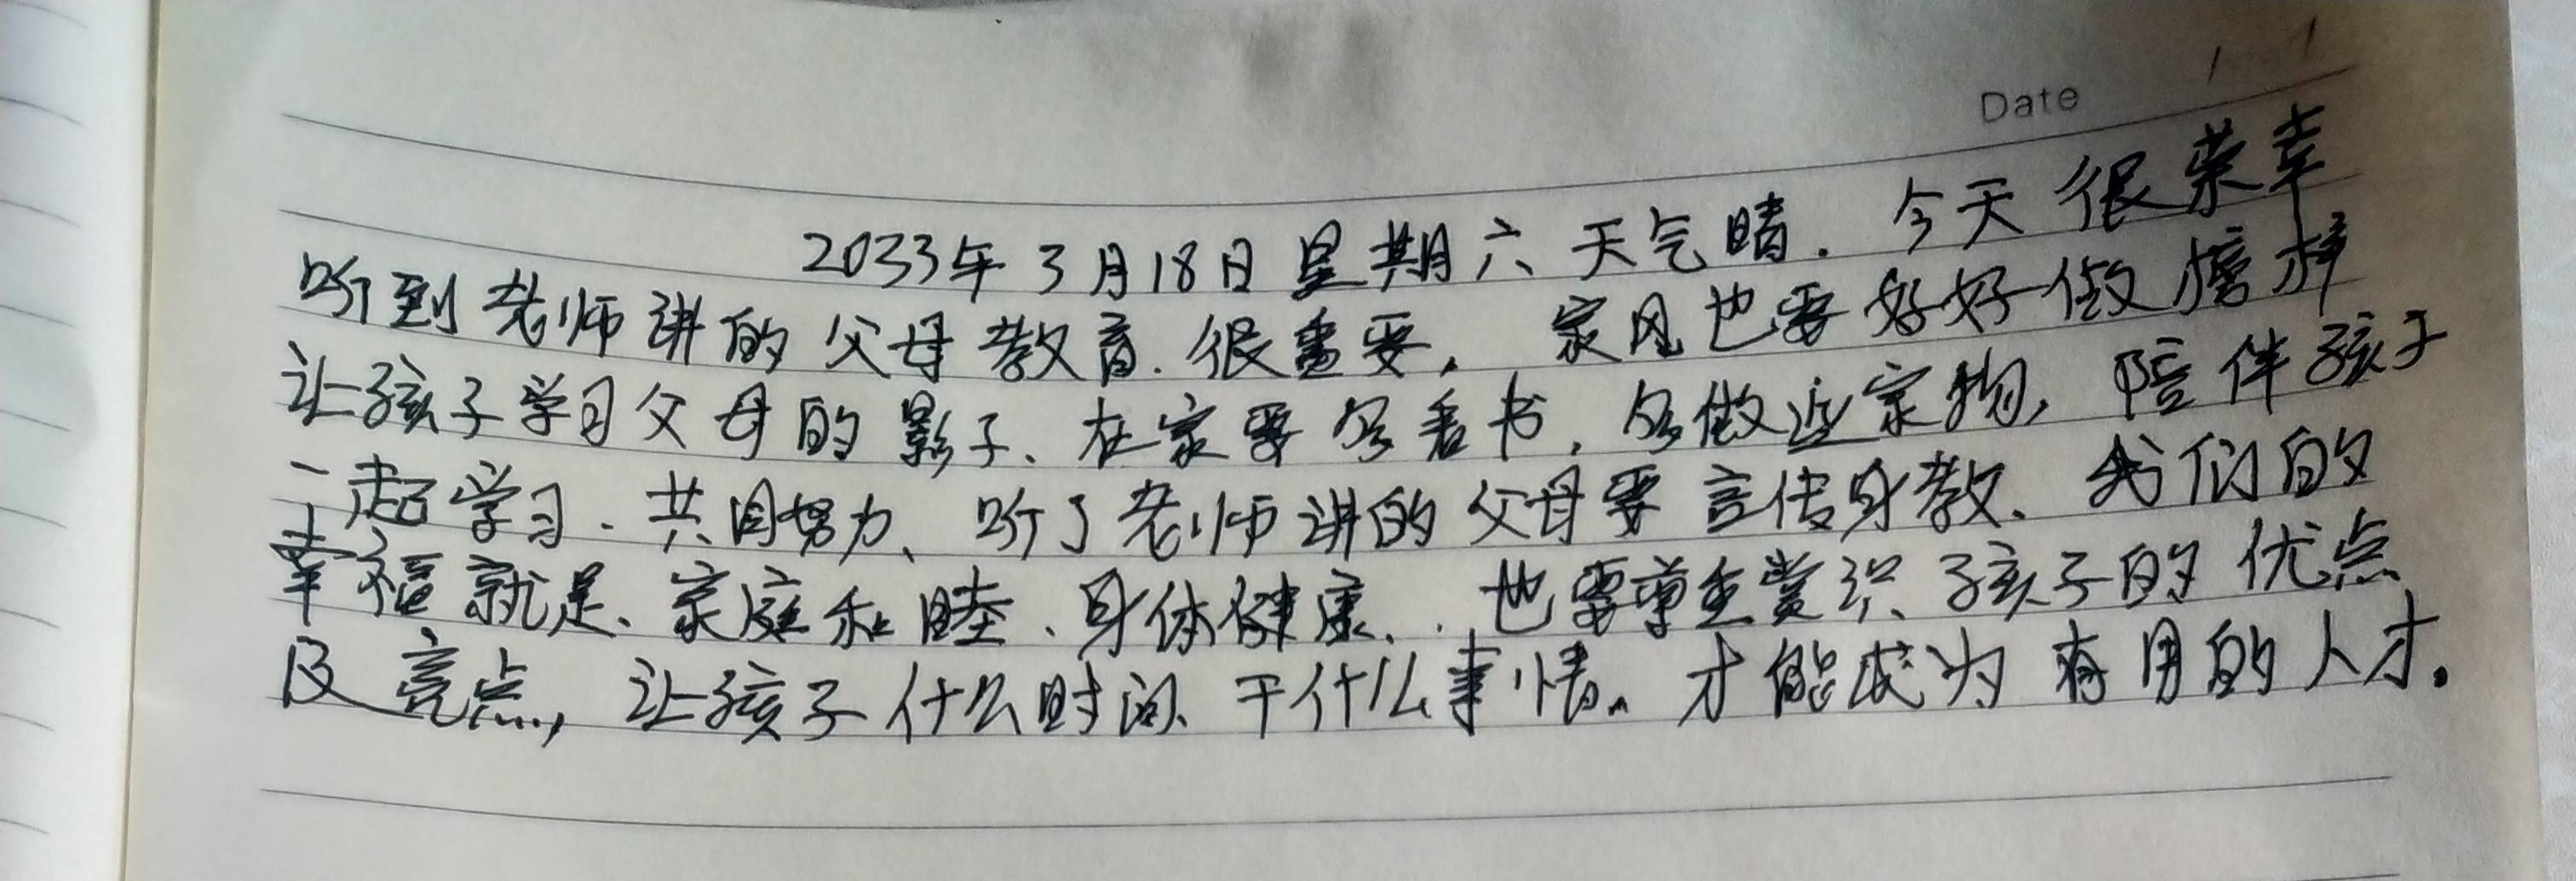 Date
2033年3月18日 星期六 天气晴. 今天 很荣幸
听到老师讲的父母教育.很重要. 家风也要好好做榜样
让孩子学习父母的影子、在家要多看书,多做近家物,陪伴孩子
一起学习.共同努力、听了老师讲的父母要言传身教、我们的
幸福就是、家庭和睦、身体健康、.也要尊重赏识、孩子的优点
及亮点,让孩子什么时间、干什么事情。才能成为有用的人才。